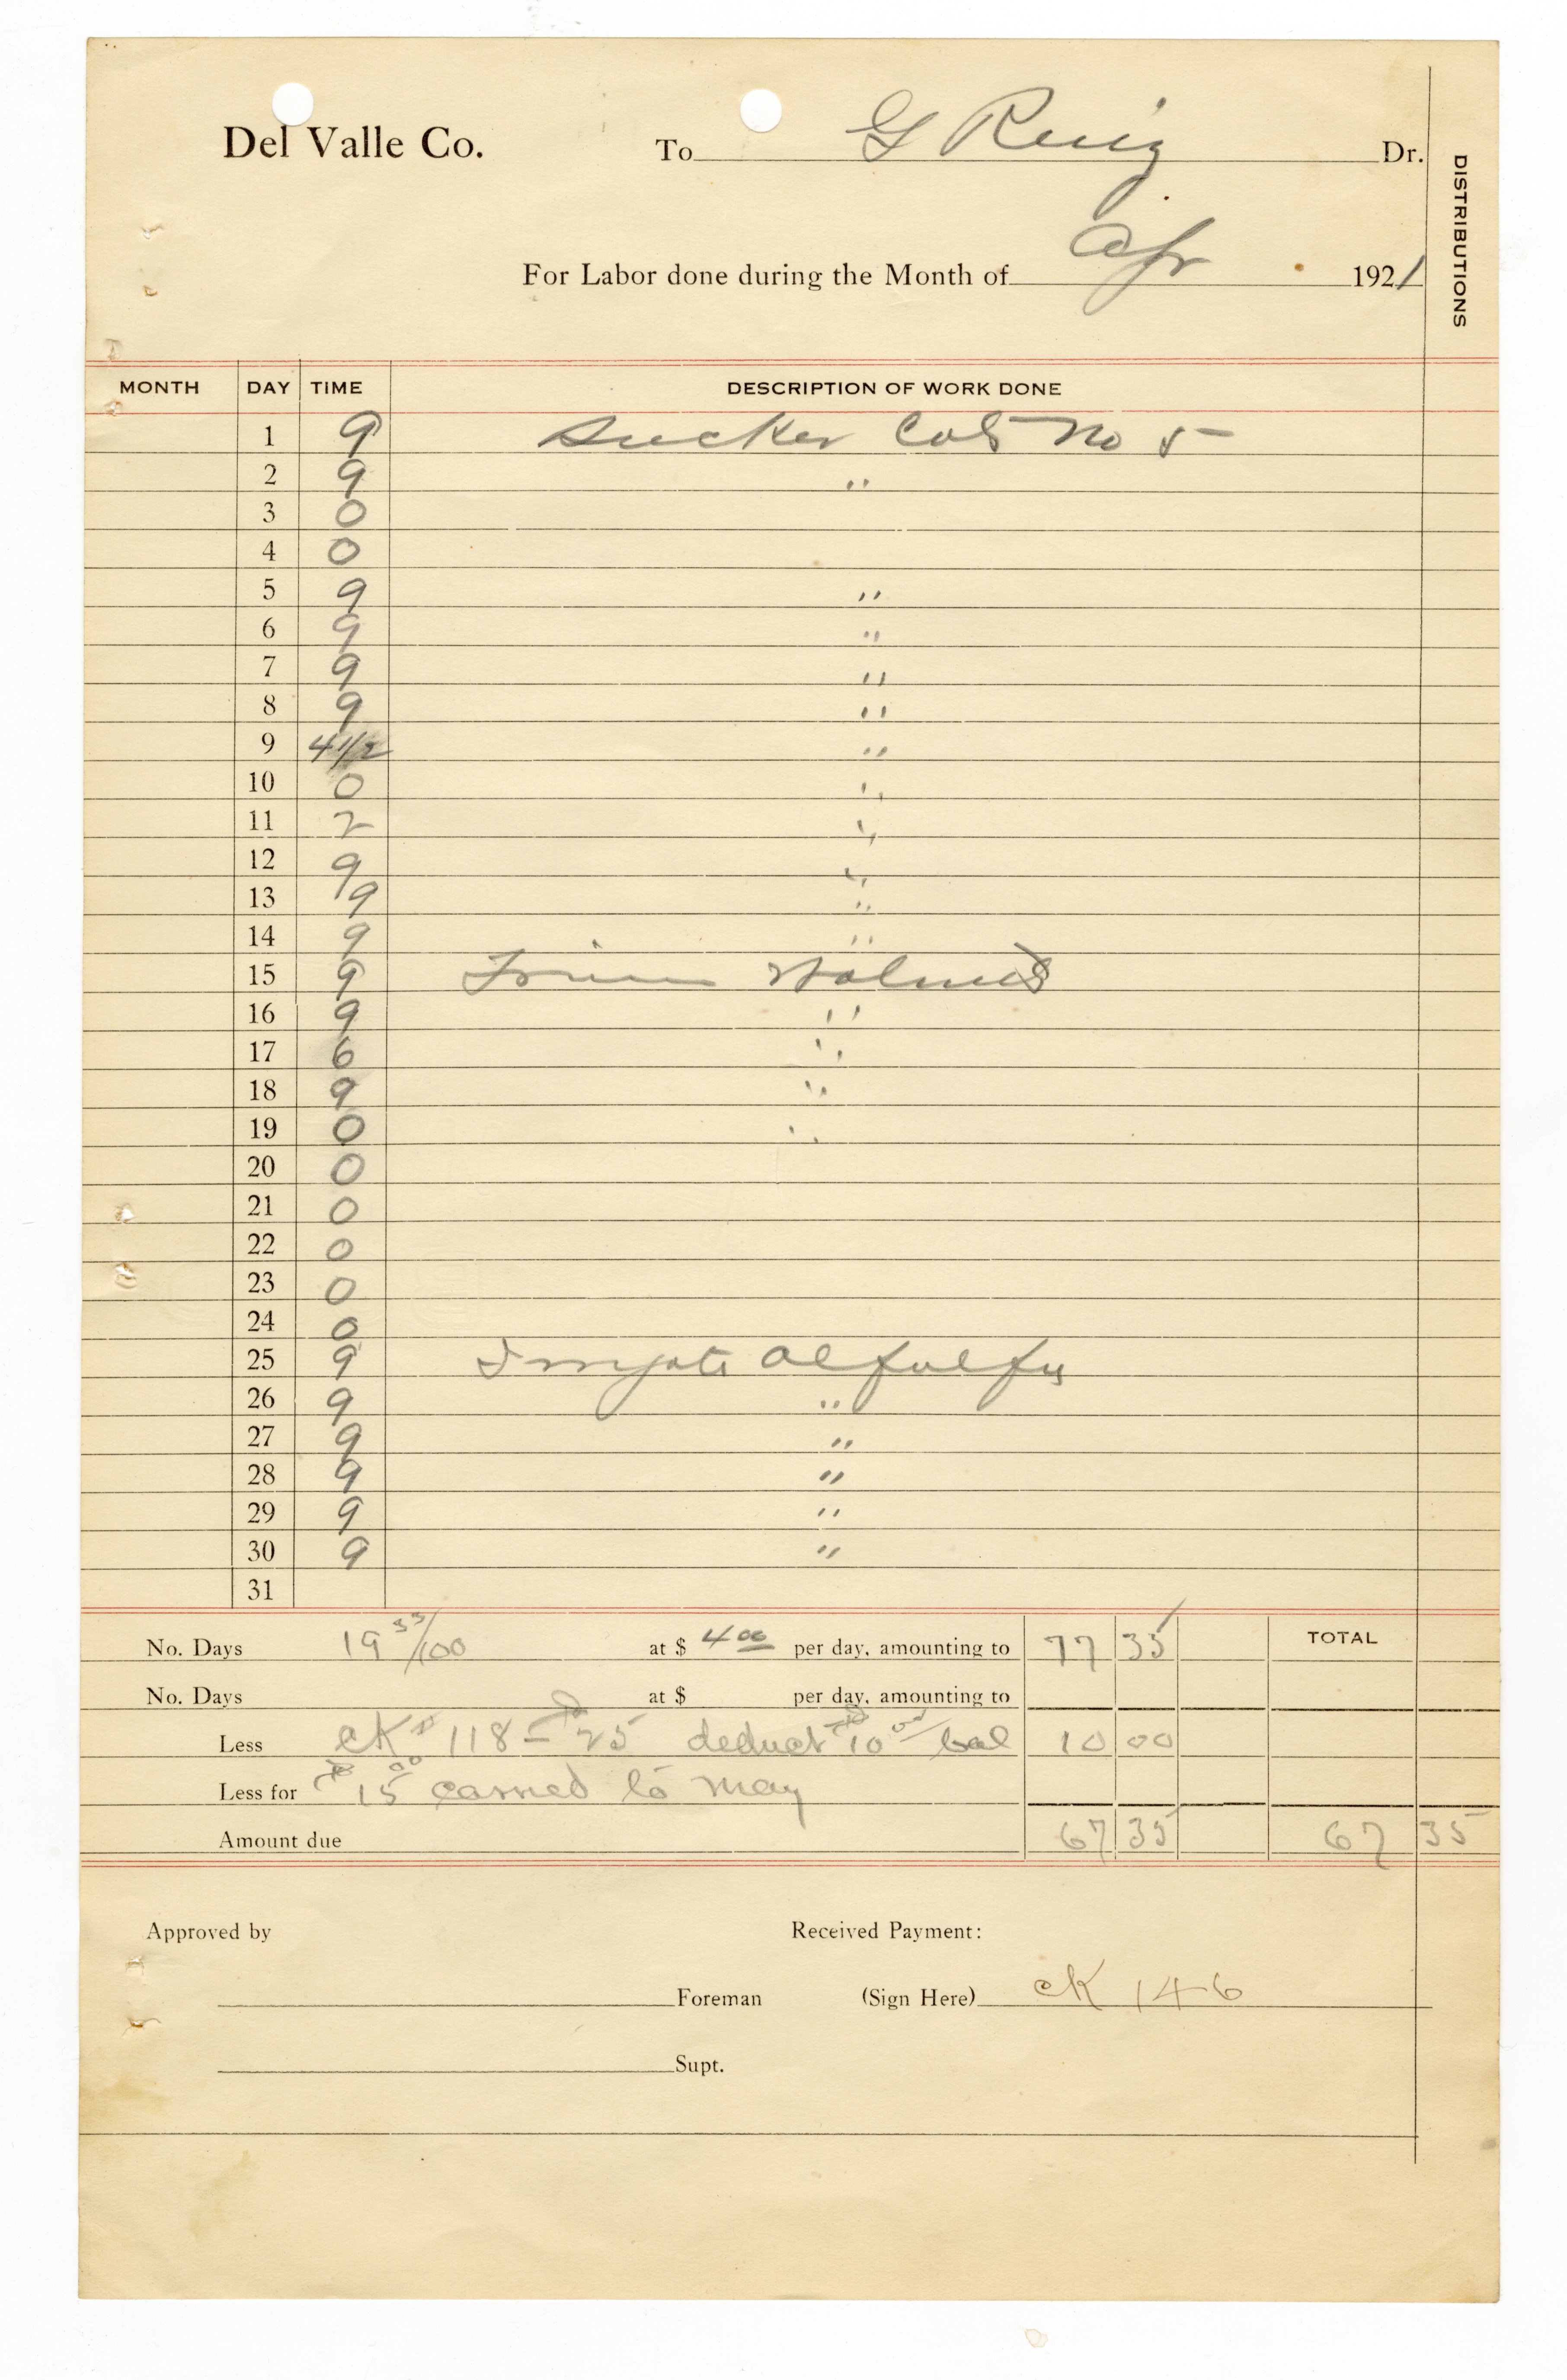 Del Valle Co. To G Ruiz Dr.
DISTRIBUTIONS
For Labor done during the Month of Apr 1921
MONTH DAY TIME DESCRIPTION OF WORK DONE
1 9 Sucker Cots No 5
2 9 "
3 0
4 0
5 9 "
6 9 "
7 9 "
8 9 "
9 4 1/2 "
10 0 "
11 2 "
12 9 "
13 9 "
14 9 "
15 9 Walnuts
16 9 "
17 6 "
18 9 "
19 0 "
20 0
21 0
22 0
23 0
24 0
25 9 Irrigate Alfalfa
26 9 "
27 9 "
28 9 "
29 9 "
30 9 "
31
No. Days 19 33/100 at $ 4 00 per day, amounting to 77 35 TOTAL
No. Days at $ per day, amounting to
Less CK # 118 - $25 deduct $10 00 bal 10 00
Less for $15 00 carried to May
Amount due 67 35 67 35
Approved by Received Payment:
Foreman (Sign Here) CK 146
Supt.